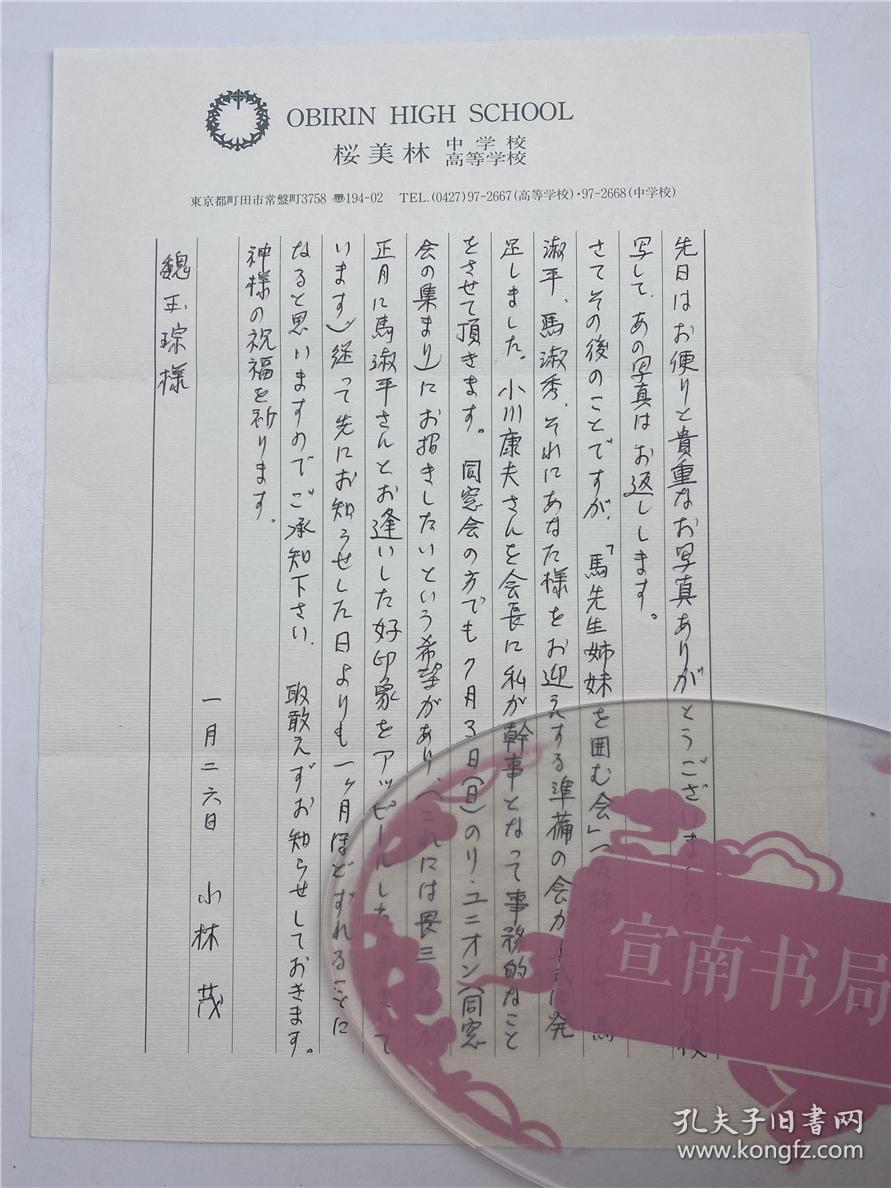 OBIRIN HIGH SCHOOL
桜美林 中学校 高等学校
東京都町田市常盤町3758 〠194-02 TEL.(0427)97-2667(高等学校)・97-2668(中学校)
先日はお便りと貴重なお写真ありがとうございました、
写して、あの写真はお返しします。
さてその後のことですが、「馬先生姉妹を囲む会」(仮称)として、馬
淑平、馬淑秀、それにあなた様をお迎えする準備の会が 発
足しました。小川康夫さんを会長に私が幹事となって事務的なこと
をさせて頂きます。同窓会の方でも7月3日(日)のリ・ユニオン(同窓
会の集まり)にお招きしたいという希望があり、(これには畏三先生が
正月に馬淑平さんとお逢いした好印象をアッピールした て
います)従って先にお知らせした日よりも一ヶ月ほどずれることに
なると思いますのでご承知下さい。取敢えずお知らせしておきます。
神様の祝福を祈ります。
一月二六日 小林 茂
魏玉琮様
宣南书局
孔夫子旧书网
www.kongfz.com